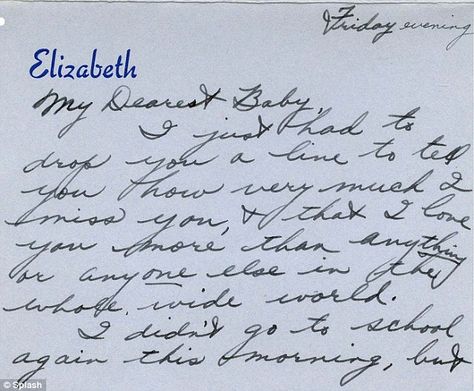 Friday evening
Elizabeth
My Dearest Baby,
I just had to
drop you a line to tell
you how very much I
miss you, & that I love
you more than anything
or anyone else in the
whole, wide world.
I didn't go to school
again this morning, but
© Splash